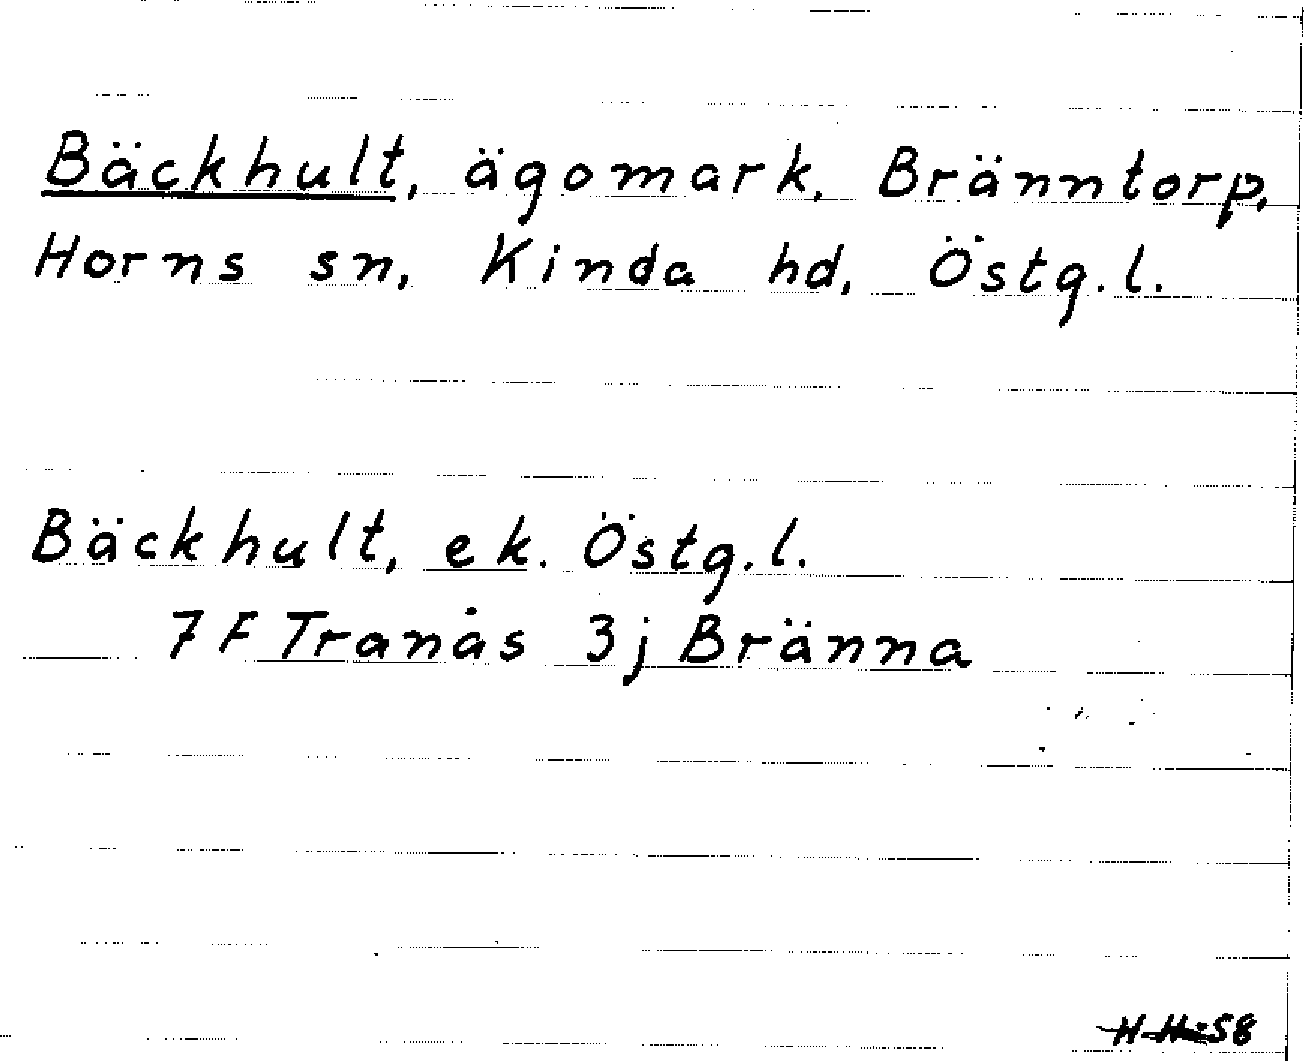 Bäckhult, ägomark, Bränntorp,
Horns sn, Kinda hd, Östg.l.
Bäckhult, ek. Östg.l.
7F Tranås 3j Bränna
58